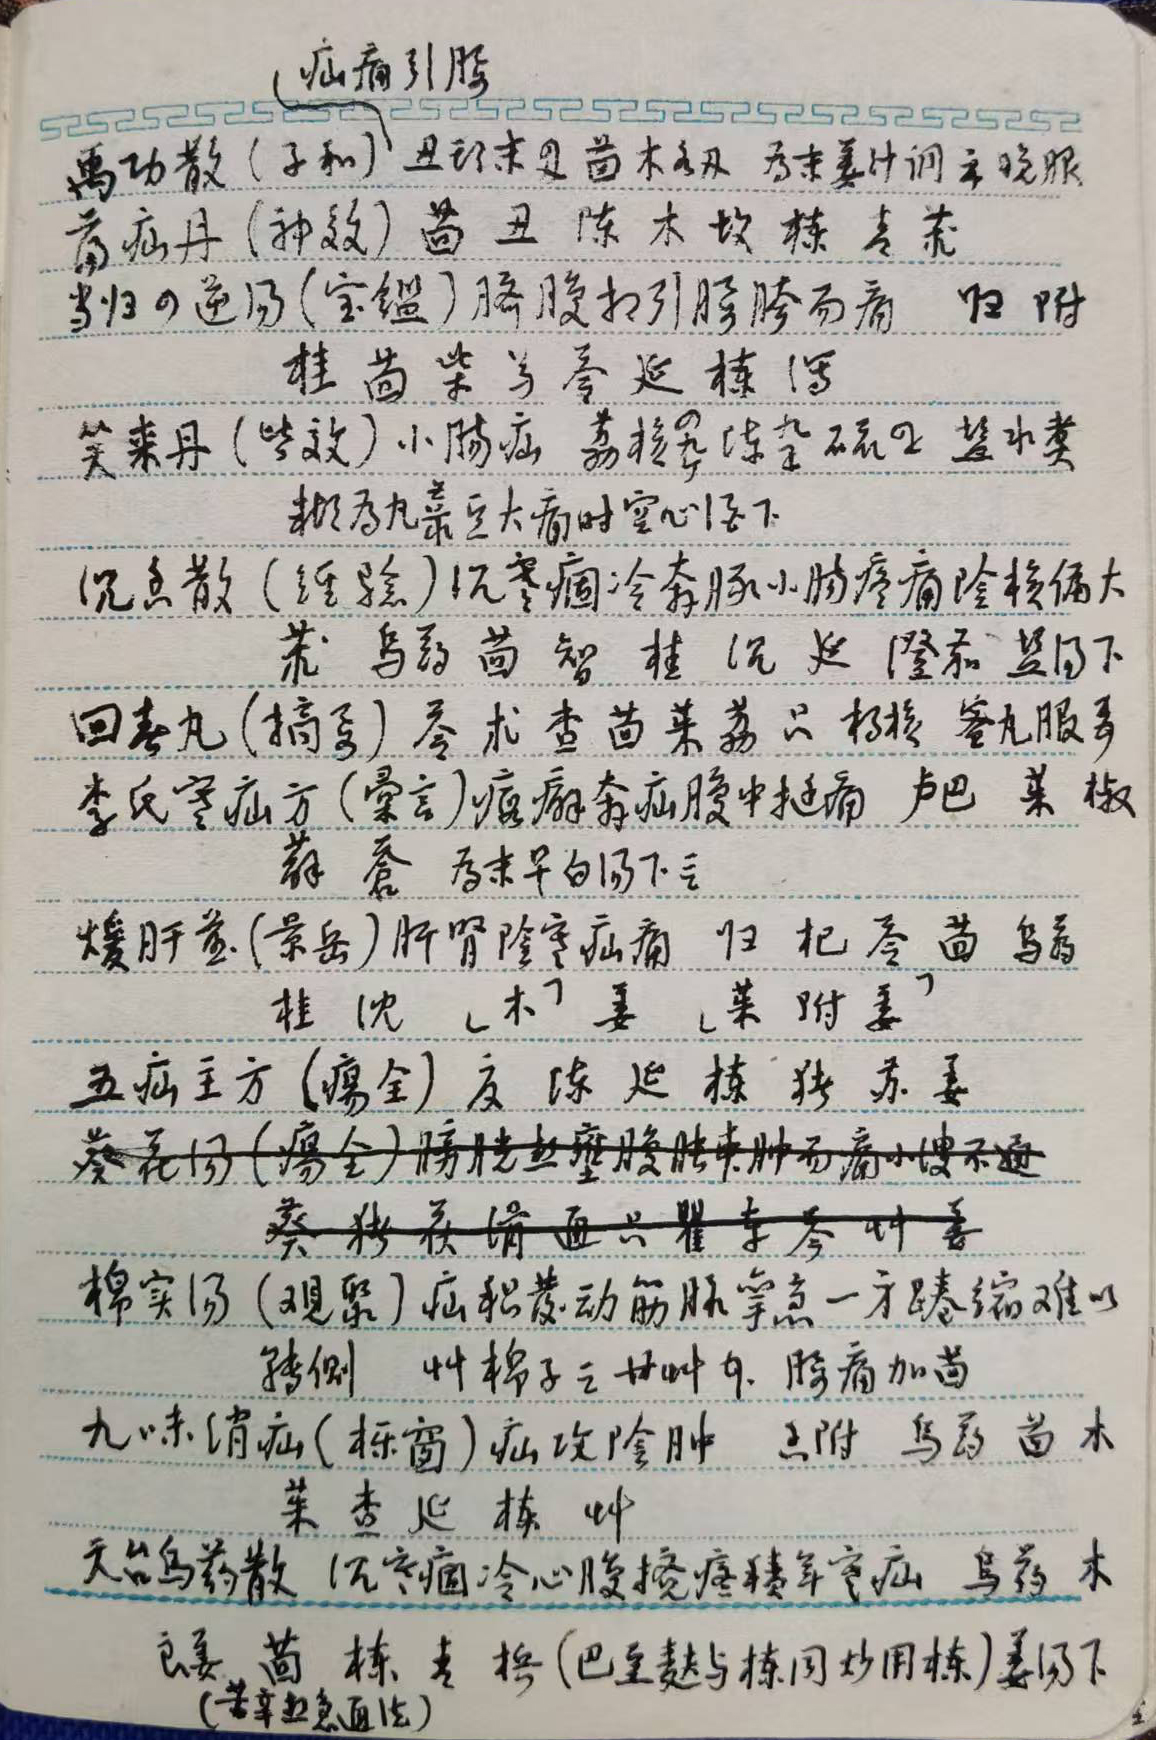 疝痛引胯
禹功散（子和）丑头末 茴木 为末姜汁调 晚服
茴疝丹（神效）茴 丑 陈 木 故 楝 青 茱
当归四逆汤（宝鑑）脐腹扣引胯胯而痛 归 附
桂 茴 柴 芍 苓 延 楝 泻
笑来丹（皆效）小肠疝 荔核 陈 硫 盐水煑
糊为丸菉豆大痛时空心酒下
沉香散（经验）沉寒痼冷奔豚小肠疼痛阴核偏大
茱 乌药 茴 智 桂 沉 延 澄茄 盐汤下
回春丸（摘玄）苓 术 查 茴 茱 荔 只 核 蜜丸服
李氏寒疝方（彙言）痃癖奔疝腹中挺痛 卢巴 茱 椒
薢 苍 为末早白汤下三
煖肝煎（景岳）肝肾阴寒疝痛 归 杞 苓 茴 乌药
桂 沈 「木」 姜 「茱 附 姜」
五疝主方（疡全）夏 陈 延 楝 猪 苏 姜
葵花汤（疡全）膀胱热壅腹胀 肿而痛小溲不通
葵 猪 茯 滑 通 只 瞿 车 芩 艸 姜
棉实汤（观聚）疝积發动筋脉挛急一方踡缩难以
转侧 艸棉子三 甘艸 胯痛加茴
九味消疝（栎窗）疝攻阴肿 香附 乌药 茴 木
茱 查 延 楝 艸
天台乌药散 沉寒痼冷心腹搅疼積年寒疝 乌药 木
良姜 茴 楝 青 梹（巴豆麸与楝同炒用楝）姜汤下
（苦辛热急通法）